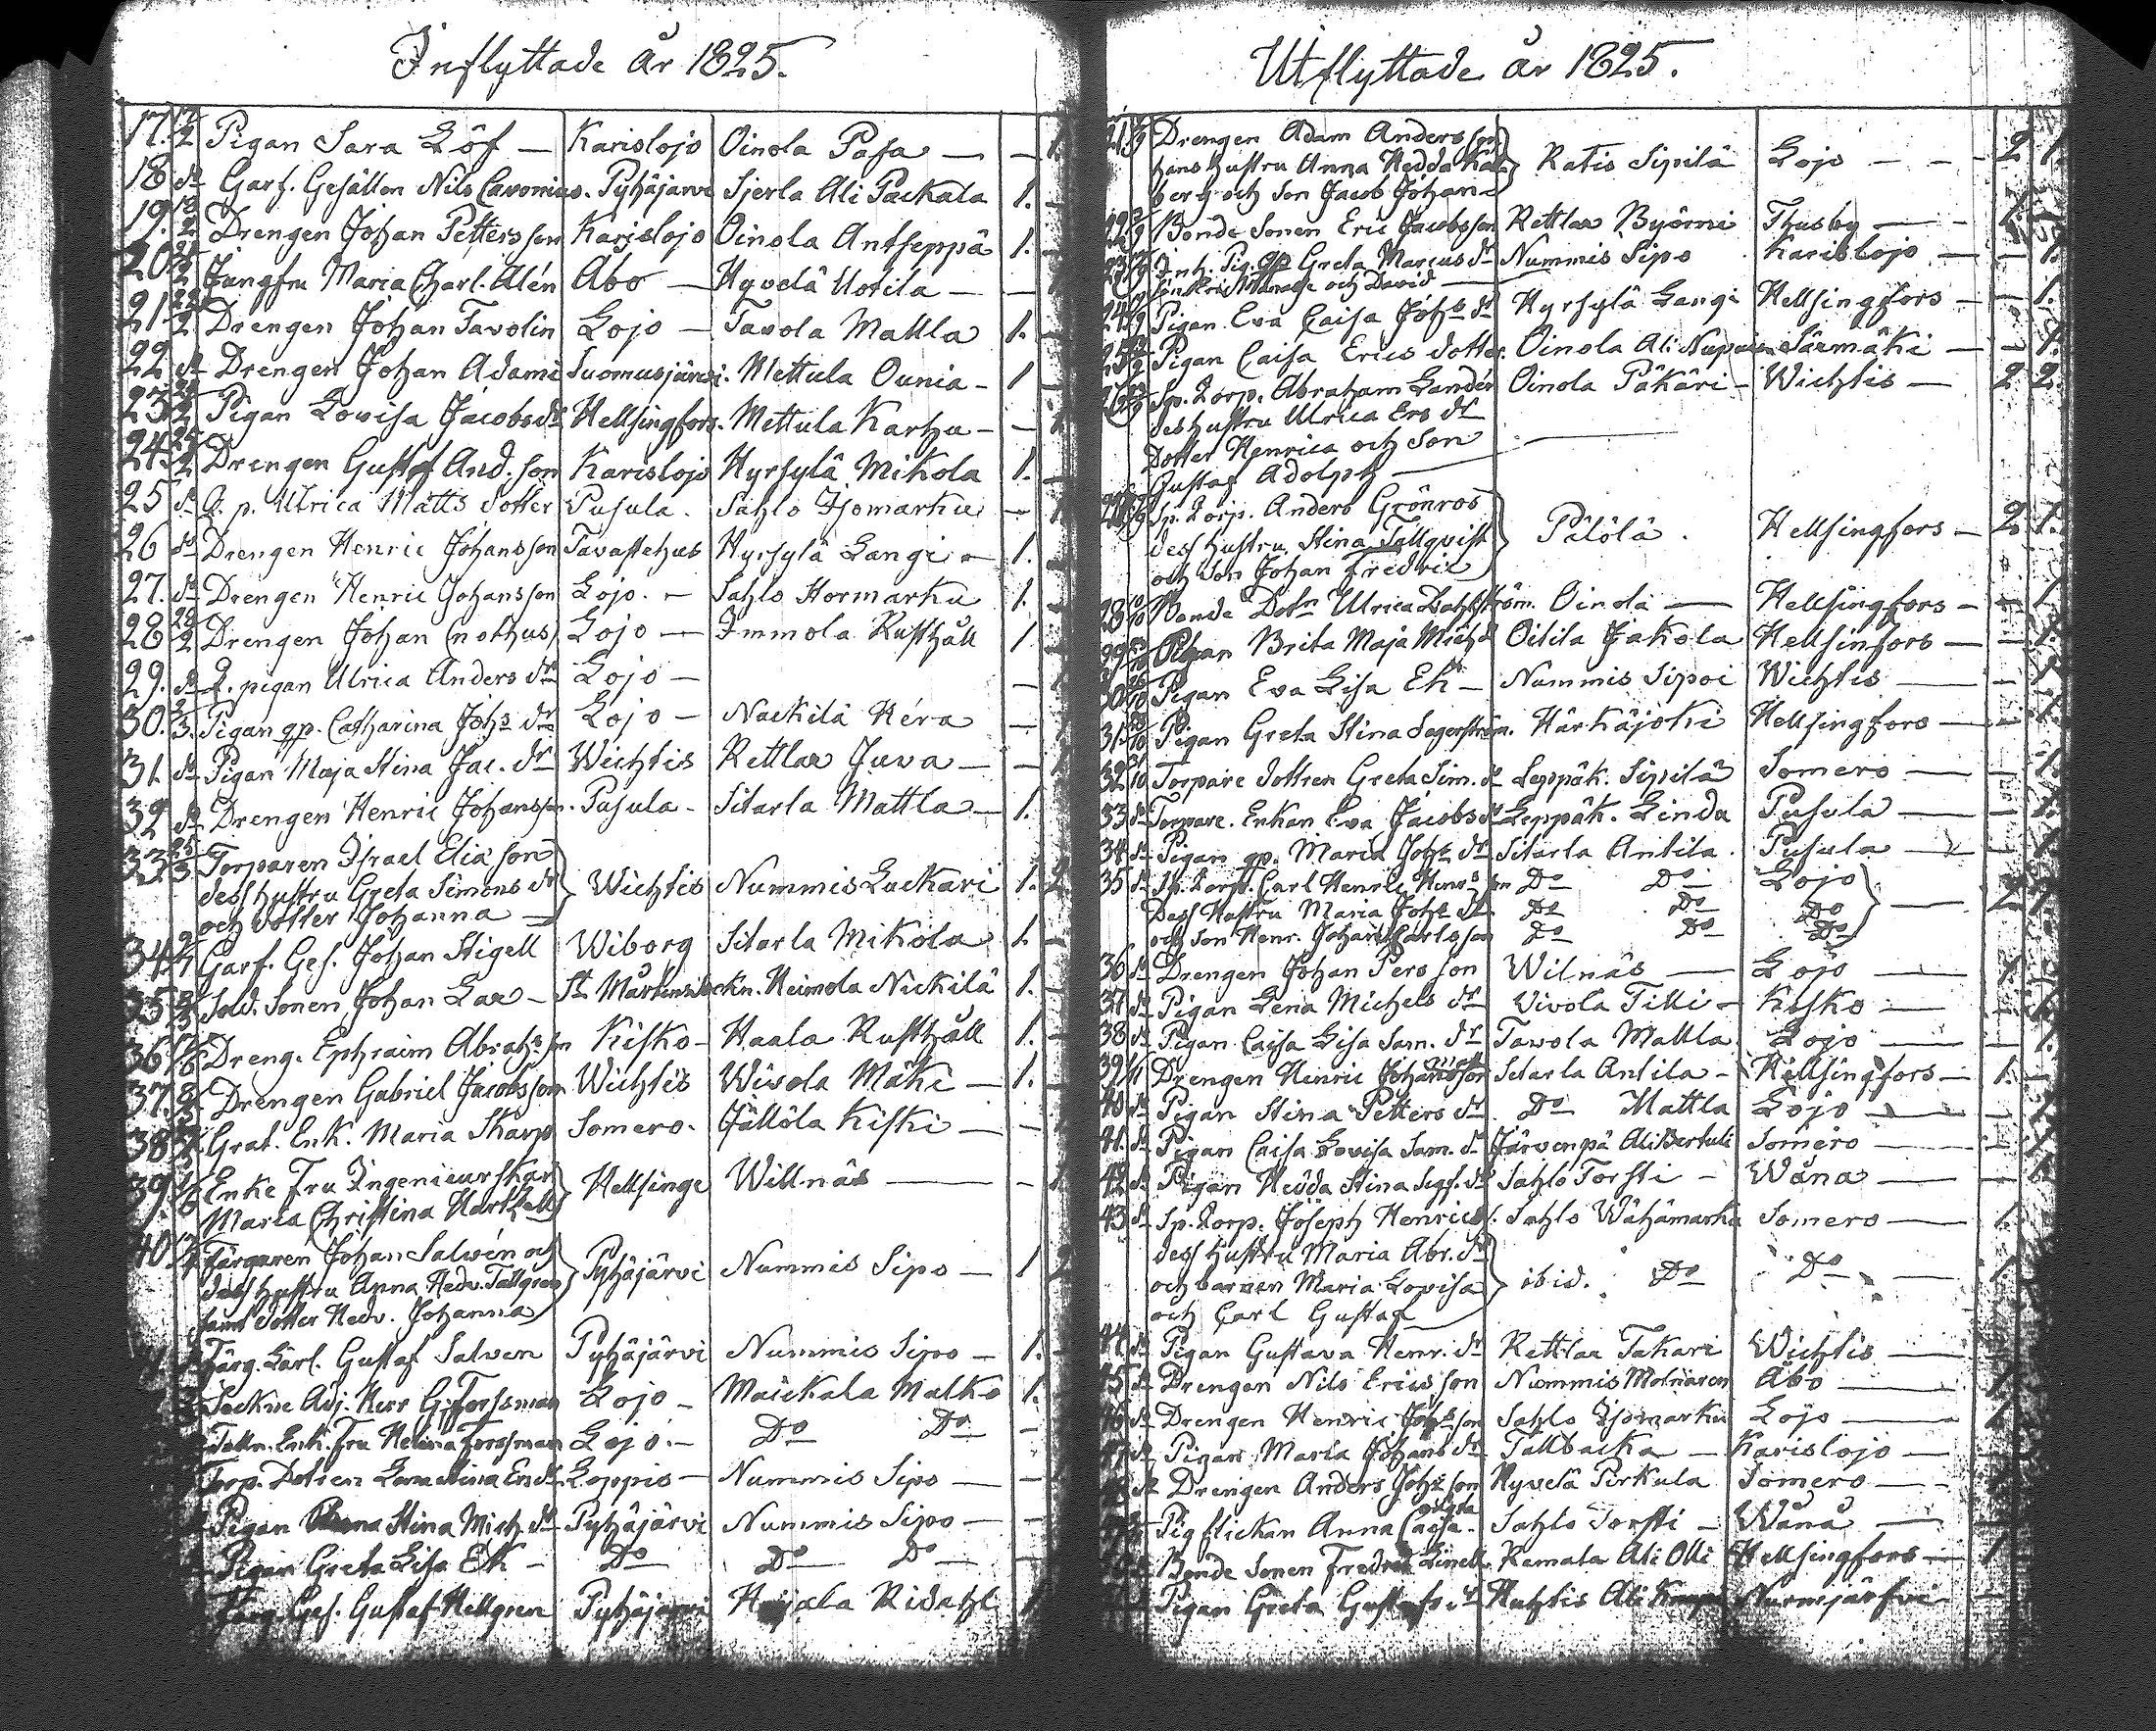 Inflyttade år 1825.
17. 17/2 Pigan Sara Löf — Karislojo Oinola Pafa — — 1.
18 do Garf. Gesällen Nils Cavonius. Pyhäjärvi Sjerla Ali Packala 1. —
19. 18/2 Drengen Johan Pettersson Karislojo Oinola Antseppä 1. —
20 Jungfru Maria Charl. Alén Åbo — Hyvelä Uotila — —
21 Drengen Johan Tavolin Lojo — Tavola Mattla 1. —
22 do Drengen Johan Adami Suomusjärvi. Mettula Ounia — 1
23 Pigan Lovisa Jacobsdr Helsingfors. Mettula Karhu — —
24 Drengen Gustaf And. son Karislojo Hyrsylä Mikola 1. —
25 do Q. p. Ulrica Matts dotter Pusula. Sahlo Isomarku —
26 do Drengen Henric Johansson Tavastehus Hyrsylä Langi — 1.
27. do Drengen Henric Johansson Lojo. — Sahlo Hormarku 1. —
28 28/2 Drengen Johan (nothus) Lojo — Immola Rusthåll 1
29. do Q. pigan Ulrica Anders dr Lojo — —
30. Pigan qp. Catharina Johs dr Lojo — Nackilä Héra —
31. do Pigan Maja Stina Jac. dr Wichtis Rettlax Juva — —
32 do Drengen Henric Johansson. Pusula — Sitarla Mattla — 1.
33 25/3 Torparen Israel Elia son
dess hustru Greta Simons dr Wichtis Nummis Luckari 1. 2
och dotter Johanna —
34 Garf. Ges. Johan Stigell Wiborg Sitarla Mikola 1. —
35 Sold. Sonen Johan Lax — St Mårtens Sockn. Heimola Nickilä 1. —
36 Dreng. Ephraim Abrahs son Kisko — Haala Rusthåll 1. —
37. Drengen Gabriel Jacobsson Wichtis Wivola Mäki — 1. —
38 Grat. Enk. Maria Skarp Somero. Jällölä Kiski — —
39. Enke Fru Ingenieurskan
Maria Christina Hartzell Helsinge Willnäs — —
40 Färgaren Johan Salvén och
dess hustru Anna Hedv. Tallgren Pyhäjärvi Nummis Sipo — 1 2
samt dotter Hedv. Johanna
Färg. Lärl. Gustaf Salven Pyhäjärvi Nummis Sipo — 1. —
Sockne Adj. Herr G. Forssman Lojo — Maickala Malko 1.
Enk. Fru Helina Forssman Lojo. — Do Do —
Torp. Dotren Lena Stina Loppis — Nummis Sipo — —
Pigan Stina Mich. dr Pyhäjärvi Nummis Sipo — —
Pigan Greta Lisa Ek — Do Do Do —
Färg. Ges. Gustaf Hellgren Pyhäjärvi Ridahl
Utflyttade år 1825.
21. Drengen Adam Andersson
hans hustru Anna Hedda
berg och Son Jacob Johan Katis Sipilä Lojo — — — 2 1.
22 Bonde Sonen Eric Jacobsson Rettlax Byörni Thusby — — 1.
23 Inh. Pig. qp Greta Marcus dr Nummis Sipo Karislojo — — 1.
och David —
24 Pigan Eva Caisa Johs dr Hyrsylä Langi Helsingfors — — 1.
25 Pigan Caisa Erics dotter. Oinola Ali Särmäki — — 1.
26 Sp. Torp. Abraham Landén Oinola Päkäri — Wichtis — 2 2.
des hustru Ulrica Ers dr
Dotter Henrica och Son
Gustaf Adolph —
27 Sp. Torp. Anders Grönros
dess hustru Stina Tallqvist Pälölä. Helsingfors — 2 1.
och Son Johan Fredric
28 Bonde Dotn Ulrica Dahlström. Oinola — Helsingfors — — 1
29 Pigan Brita Maja Michs dr Oitila Jakola Helsinfors — — 1.
30 Pigan Eva Lisa Ek — Nummis Sipoi Wichtis — — 1
31 Pigan Greta Stina Lagerström. Härkäjoki Helsingfors — — 1.
32 Torpare dottren Greta Sim. dr Leppäk. Sipilä Somero — — 1.
33 do Torpare. Enkan Eva Jacobs dr Leppäk. Linda Pusula — — 1.
34 do Pigan qp. Maria Johs dr Sitarla Antila. Pusula — — 1
35 do Sp. Torp. Carl Henric Henrs son Do Do Lojo
Dess Hustru Maria Johs dr Do Do Do — 2 1
och son Henr. Johan Carlsson Do Do Do
36 do Drengen Johan Persson Wilnäs — Lojo — 1
37 do Pigan Lena Michels dr Wivola Tilli — Kisko —
38 do Pigan Caisa Lisa Sam. dr Tavola Mattla Lojo — 1.
39 Drengen Henric Johansson Sitarla Antila — Helsingfors — 1. —
40 do Pigan Stina Petters dr. Do Mattla Lojo — 1
41. do Pigan Caisa Lovisa Sam. dr Järvenpä Ali Bertuli Somero — 1.
42 do Pigan Hedda Stina Segf. dr Sahlo Torsti — Wåna — 1
43 do Sp. Torp. Joseph Henrics. Sahlo Wähämarku Somero — 1.
dess hustru Maria Abr. dr
och barnen Maria Lovisa ibid. Do Do — 1
och Carl Gustaf
44 do Pigan Gustava Henr. dr Rettlax Takari Wichtis —
45 do Drengen Nils Ericsson Nummis Molnaren Åbo —
46 do Drengen Henric Johs son Sahlo Isomarku Lojo —
47 do Pigan Maria Johans dr Tallbacka — Karislojo —
Drengen Anders Johs son Hyvelä Pirkula Somero —
Pigflickan Anna Caisa. Sahlo Torsti — Wånå —
Bonde Sonen Fredric Linell Remala Ali Olli Helsingfors —
Pigan Greta Gustafs dr Huhtis Ali Nurmijärfvi —